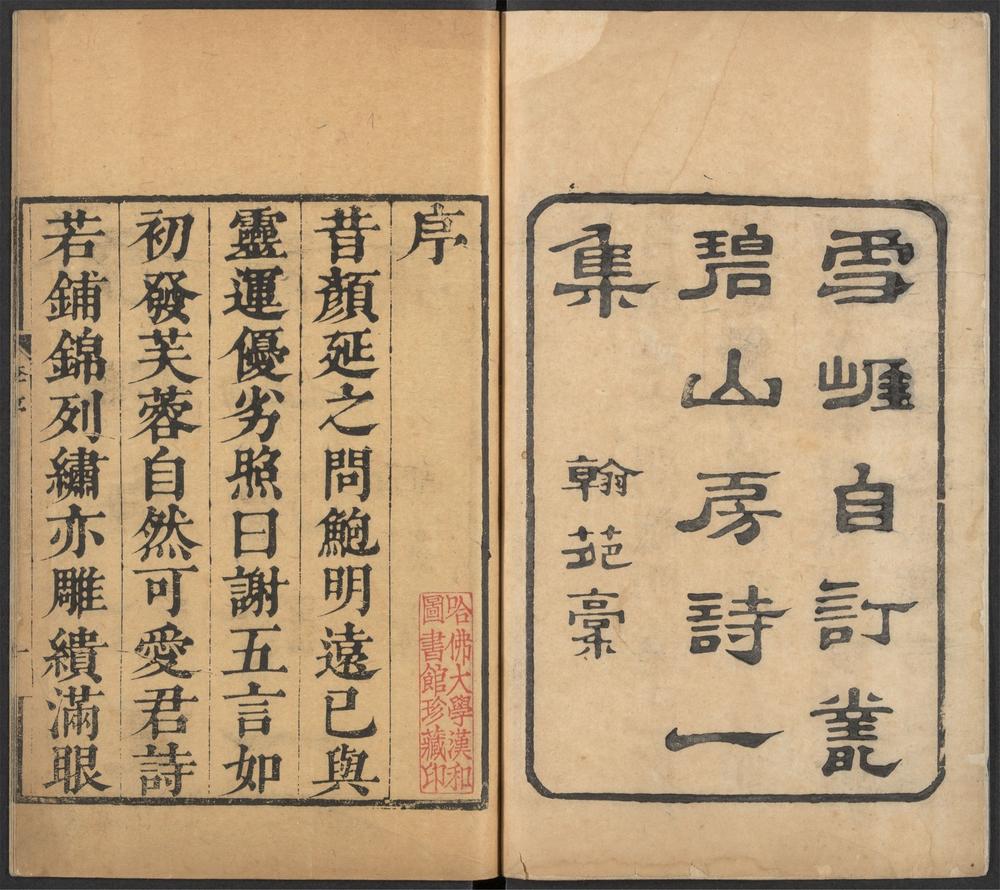 雪崕自訂叢
碧山房詩一
集
翰苑稾
序
昔顏延之問鮑明遠已與
靈運優劣照曰謝五言如
初發芙蓉自然可愛君詩
若鋪錦列繡亦雕繢滿眼
哈佛大學漢和
圖書館珍藏印